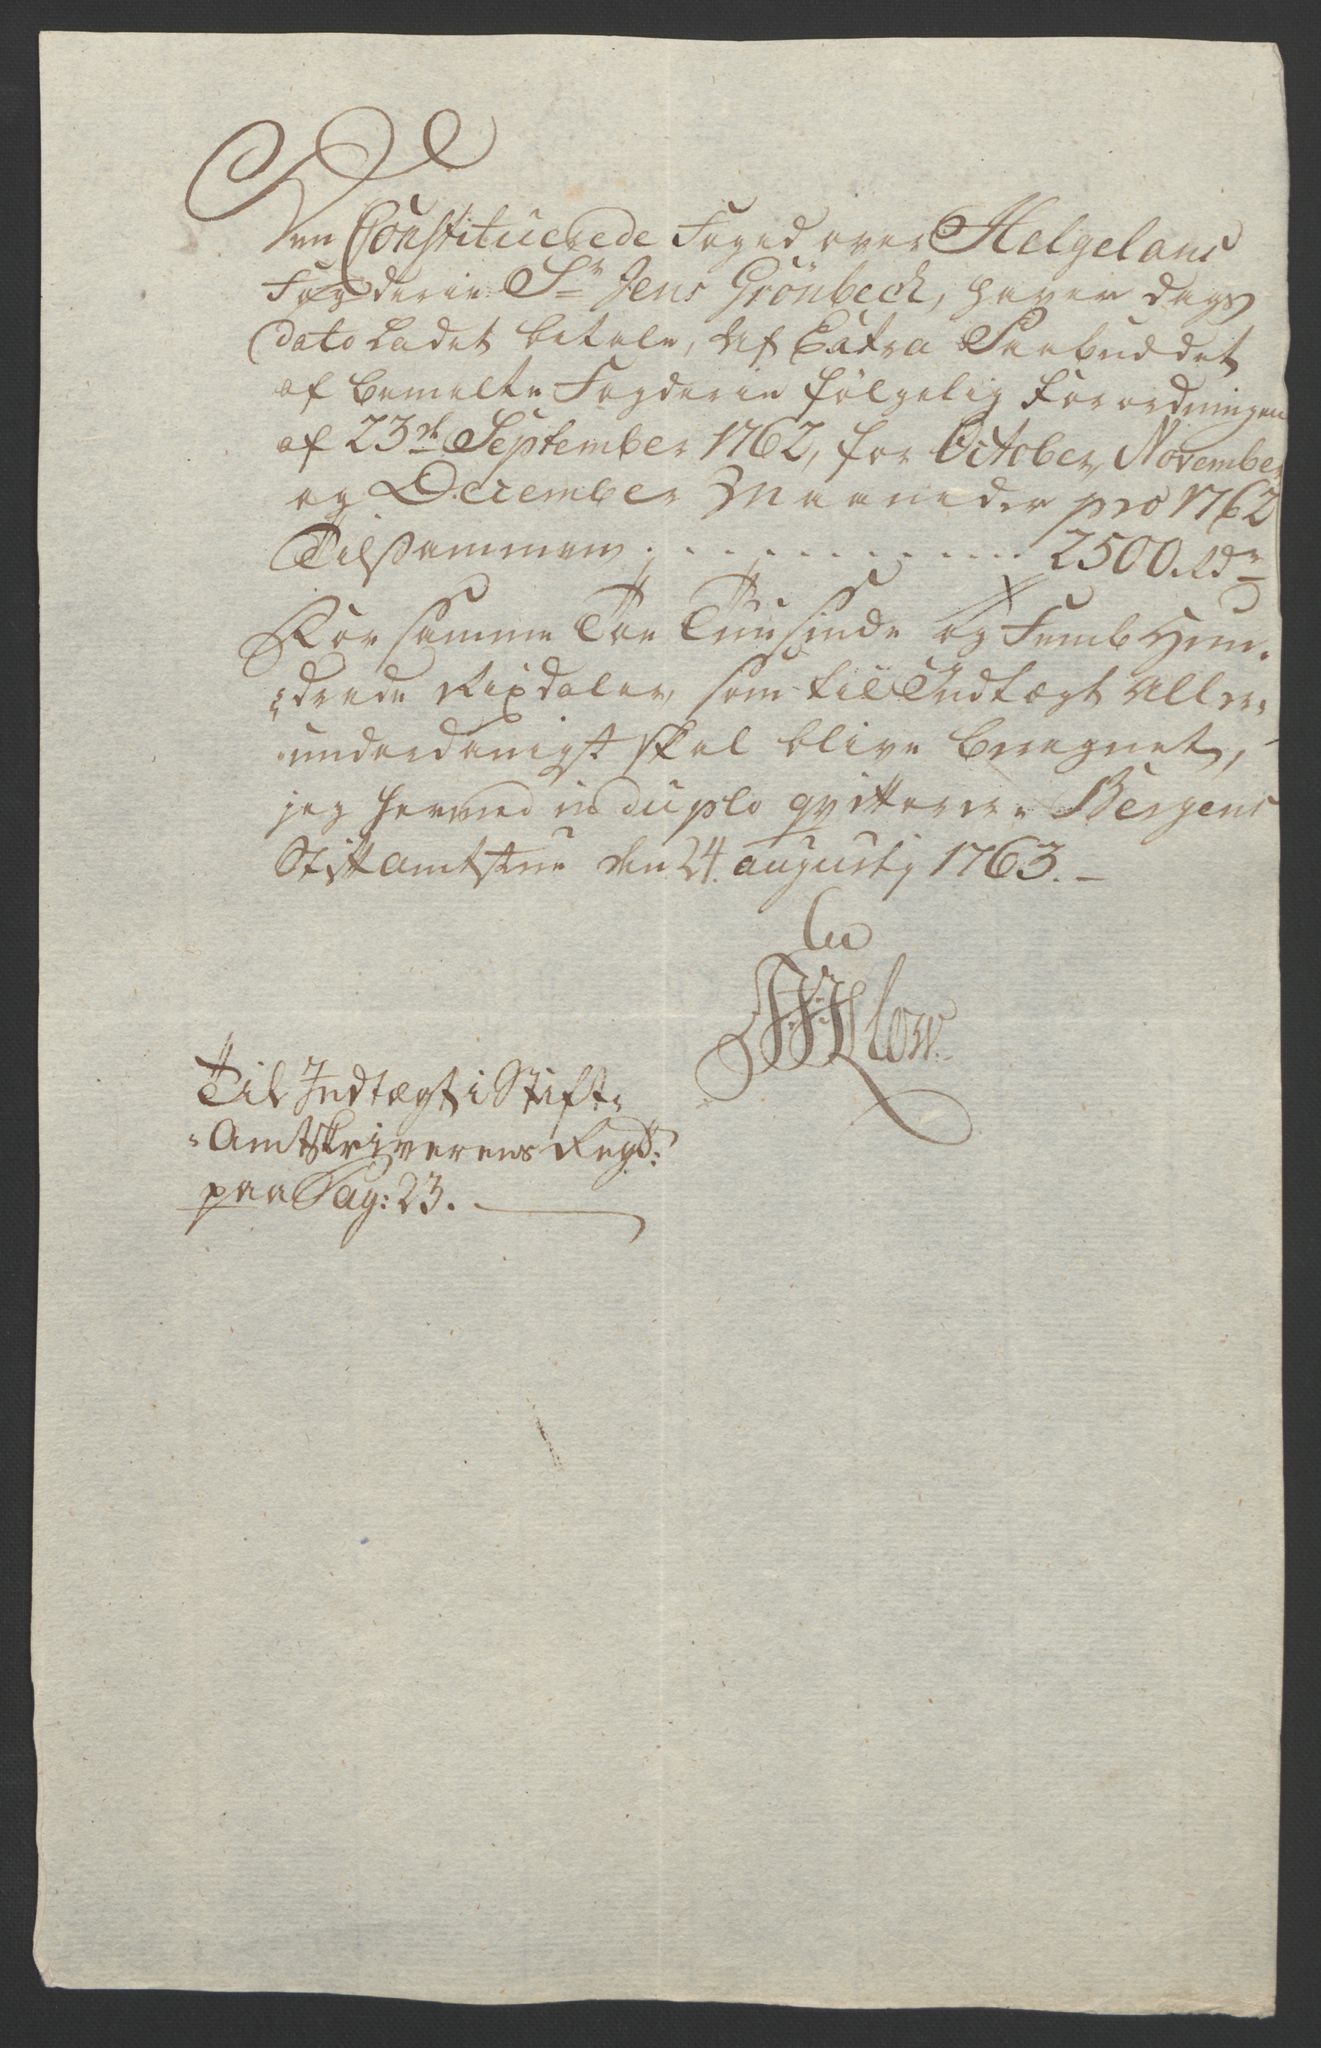 Den Constituerede Foged over Helgelans
Fogderie Sr Jens Grönbech, haver dags
dato Ladet betale, Af Extra Paabuddet
af bemelte Fogderie følgelig Forordningen
af 23de September 1762, for October, November
og December Maaneder pro 1762
Tilsammen . . . . . . . . . . . . 2500. rdr
For samme Toe Tuusinde og Femb Hun-
drede Rixdaler, som til Indtægt Aller-
underdanigst skal blive beregnet,
jeg herved in duplo qvitterer. Bergens
Stiftamtstue den 24. augustj 1763. –
Klow.
Til Indtægt i Stift-
Amtskriverens Regsk:
paa Pag: 23.